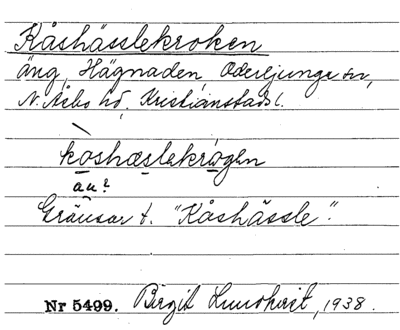 Kåshässlekroken
äng, Hägnaden, Oderljunga sn,
N. Åsbo hd, Kristianstads l.
koshæslekrogen
au?
Gränsar t. "Kåshässle".
Nr 5499. Birgit Lundkvist, 1938.